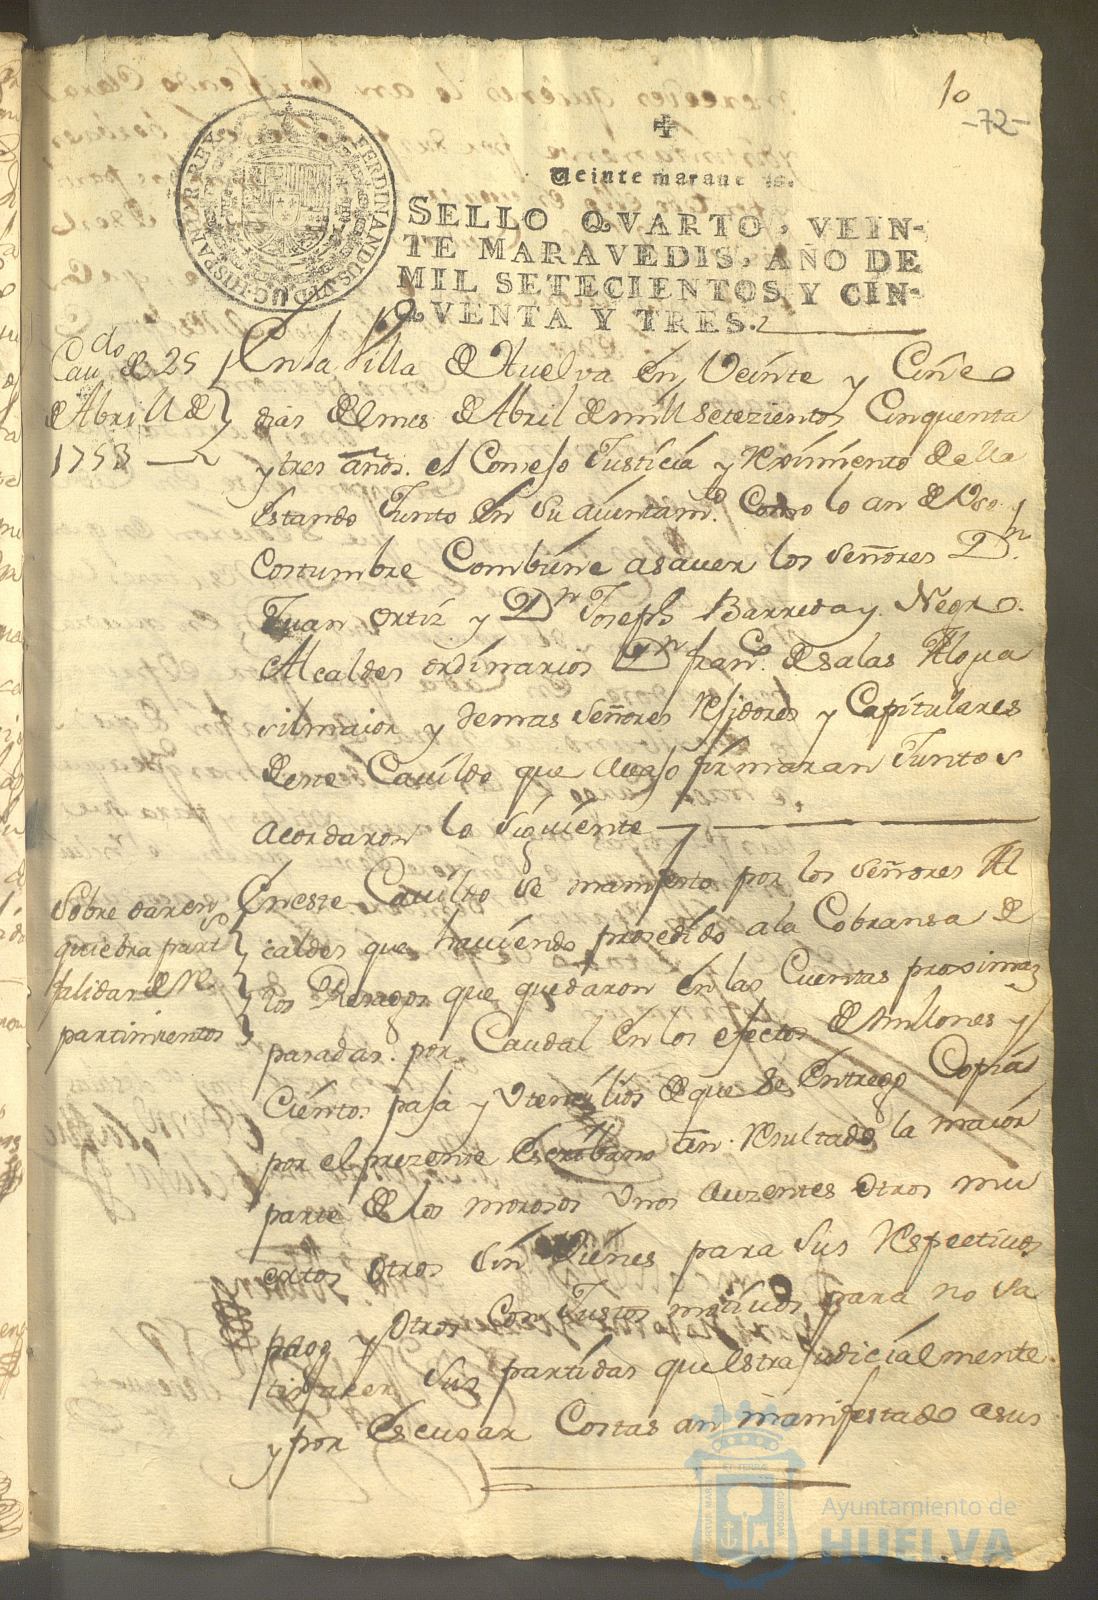 10
-72-
Veinte maraue is.
SELLO QVARTO, VEIN-
TE MARAVEDIS, AÑO DE
MIL SETECIENTOS Y CIN-
QVENTA Y TRES.
FERDINANDUS VI D.G. HISPANIAR REX
Cau.do de 25
de Abrill de
1753
En la Villa de Huelva en Veinte y Cinco
dias del mes de Abril de mill setezientos Cinquenta
y tres años. el Consejo Justicia y Reximiento de ella
estando Junto en su aiuntam.to Como lo an de Vso
Costumbre Combiene asauer los señores D.n
Juan ortiz y D.n Joseph Barreda y Negro.
Alcaldes ordinarios D.n Fran.co de salas Alгua
sil maior y demas señores Rejidores y Capitulares
de este Cauildo que auajo firmaran Juntos
acordaron lo siguiente
Sobre dar en
quiebra part.s
falidas de Re
partimientos
En este Cauildo se manifesto por los señores Al
caldes que hauiendo prosedido a la Cobransa de
los Rezagos que quedaron en las Cuentas proximas
pasadas. por Caudal en los efectos de Millones y
Cientos paja y Utensilios de que se entrego Copias
por el prezente Escribano an Resultado la maior
parte de los morosos Unos auzentes otros mu
ertos otros sin bienes para sus Respectivos
pagos y otros Con Justos motivos para no sa
tisfacer sus partidas que Estrajudicialmente
y por Escusar Costas an manifestado a sus
Ayuntamiento de
HUELVA